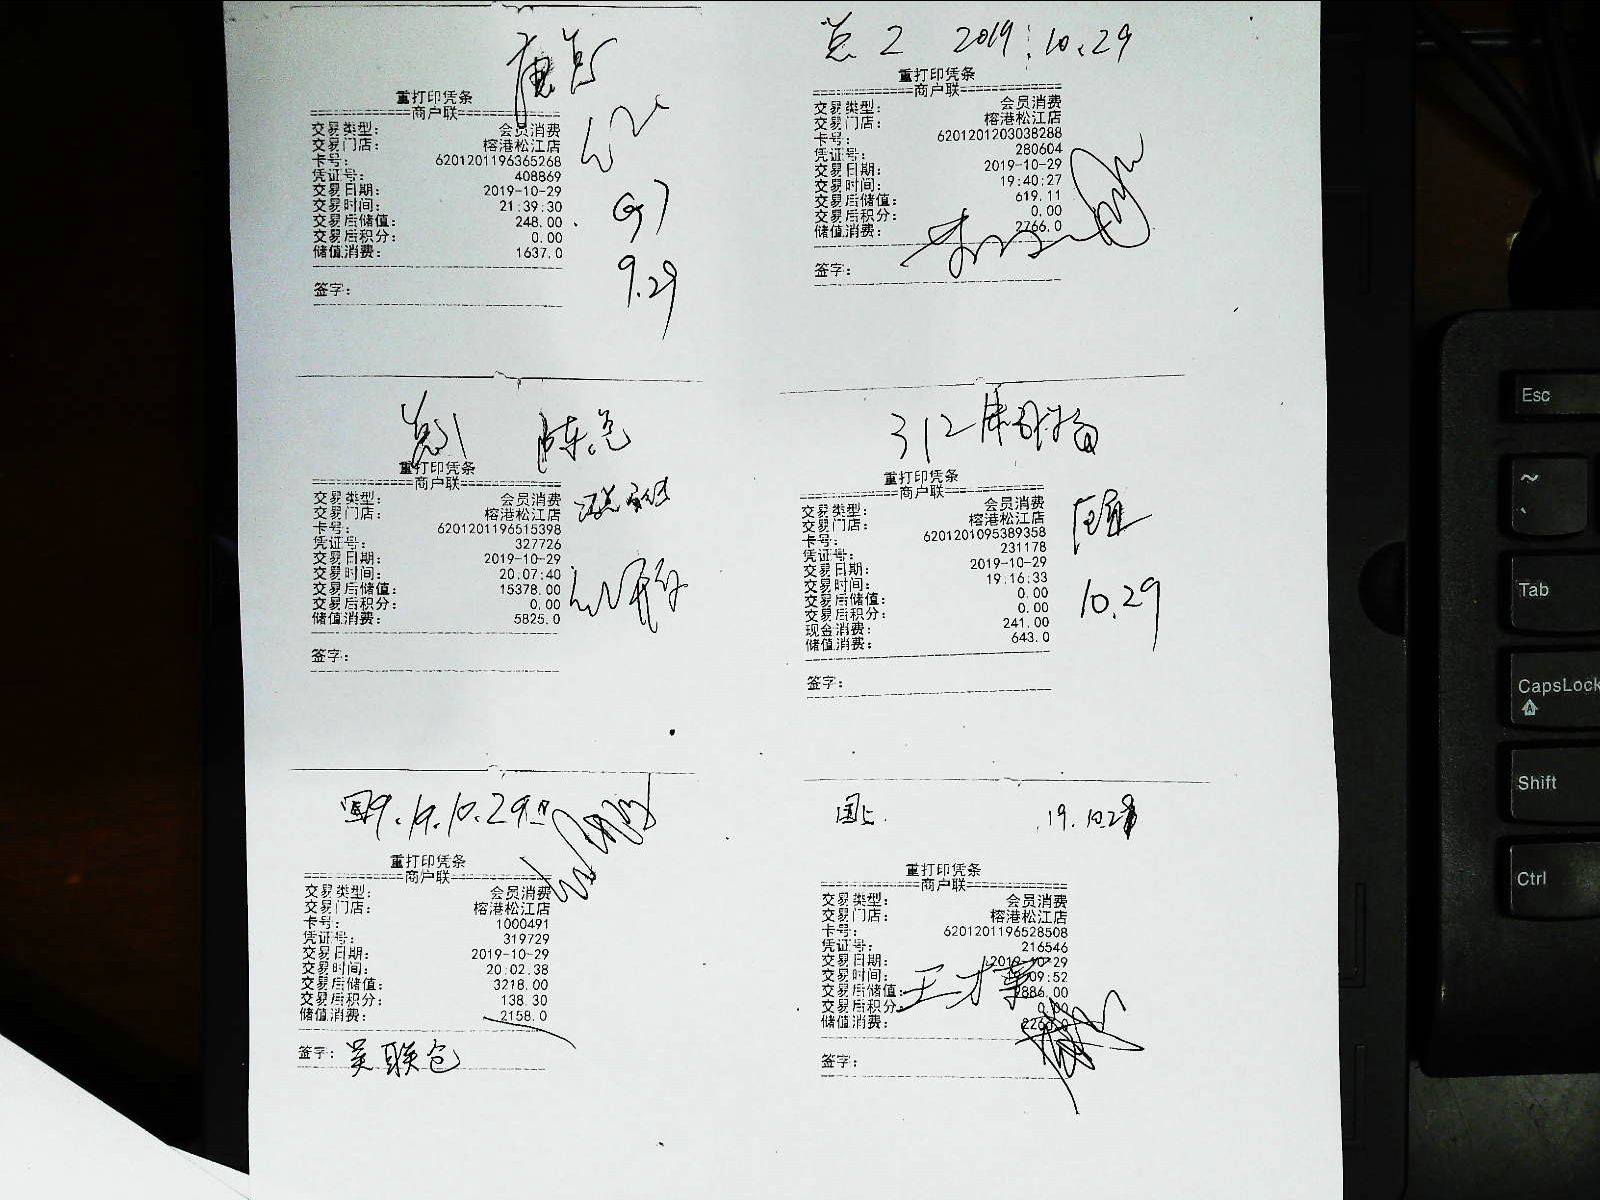 重打印凭条
商户联
交易类型: 会员消费
交易门店: 榕港松江店
卡号: 6201201196365268
凭证号: 408869
交易日期: 2019-10-29
交易时间: 21:39:30
交易后储值: 248.00
交易后积分: 0.00
储值消费: 1637.0
签字:
9.29
总2 2019.10.29
重打印凭条
商户联
交易类型: 会员消费
交易门店: 榕港松江店
卡号: 6201201203038288
凭证号: 280604
交易日期: 2019-10-29
交易时间: 19:40:27
交易后储值: 619.11
交易后积分: 0.00
储值消费: 2766.0
签字:
总51 陈总
重打印凭条
商户联
交易类型: 会员消费
交易门店: 榕港松江店
卡号: 6201201196515398
凭证号: 327726
交易日期: 2019-10-29
交易时间: 20:07:40
交易后储值: 15378.00
交易后积分: 0.00
储值消费: 5825.0
签字:
312
重打印凭条
商户联
交易类型: 会员消费
交易门店: 榕港松江店
卡号: 6201201095389358
凭证号: 231178
交易日期: 2019-10-29
交易时间: 19:16:33
交易后储值: 0.00
交易后积分: 0.00
现金消费: 241.00
储值消费: 643.0
签字:
10.29
国9.19.10.29
重打印凭条
商户联
交易类型: 会员消费
交易门店: 榕港松江店
卡号: 1000491
凭证号: 319729
交易日期: 2019-10-29
交易时间: 20:02:38
交易后储值: 3218.00
交易后积分: 138.30
储值消费: 2158.0
签字: 吴联仓
国上 19.10.29
重打印凭条
商户联
交易类型: 会员消费
交易门店: 榕港松江店
卡号: 6201201196528508
凭证号: 216546
交易日期: 2019-10-29
交易时间: 09:52
交易后储值: 886.00
交易后积分: 0.00
储值消费:
签字:
Esc
~
Tab
CapsLock
A
Shift
Ctrl